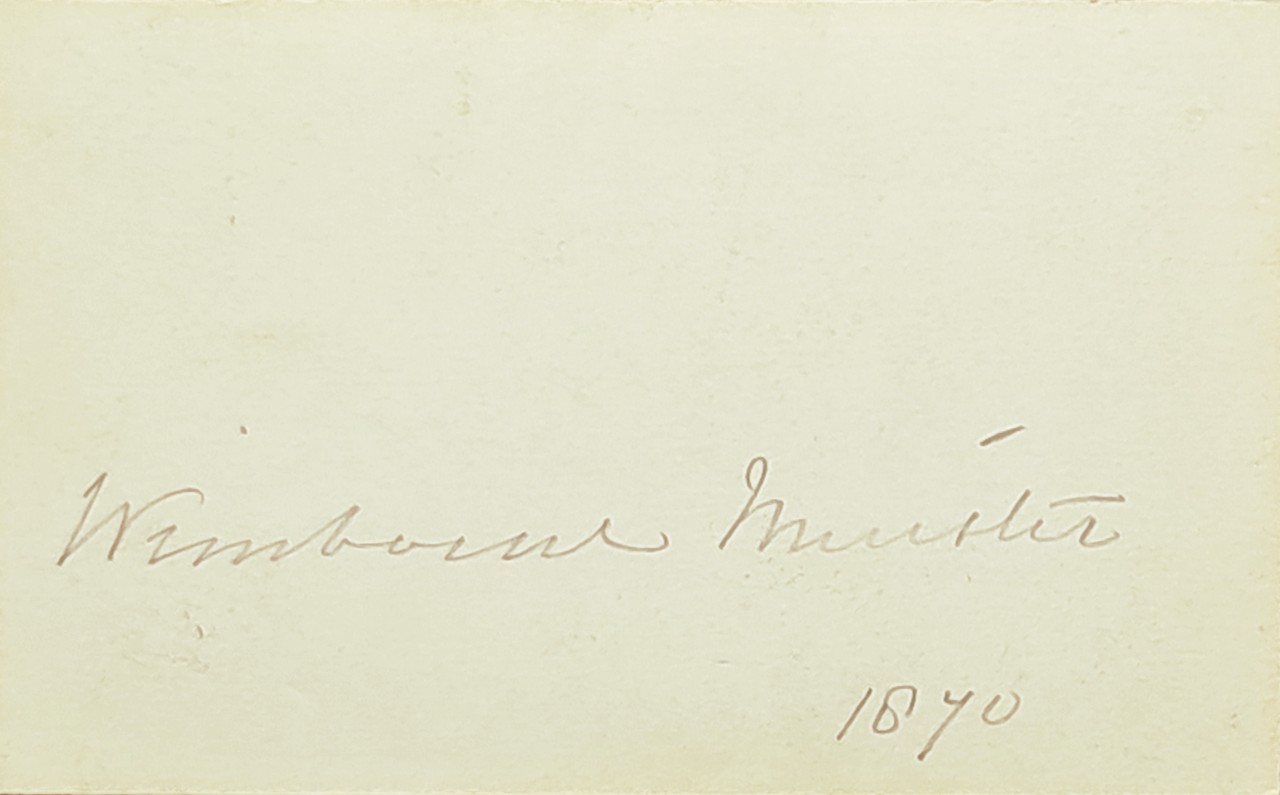 Wimborne Minster
1870